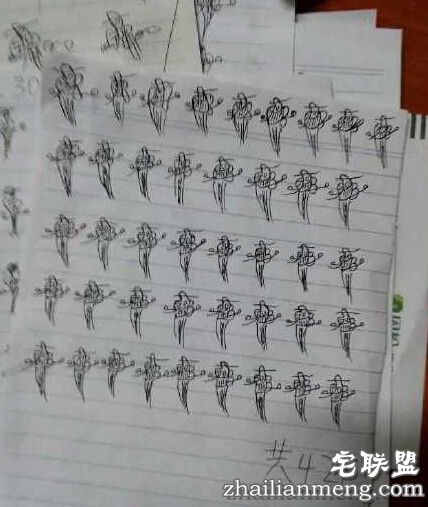 30
共42
宅联盟
zhailianmeng.com